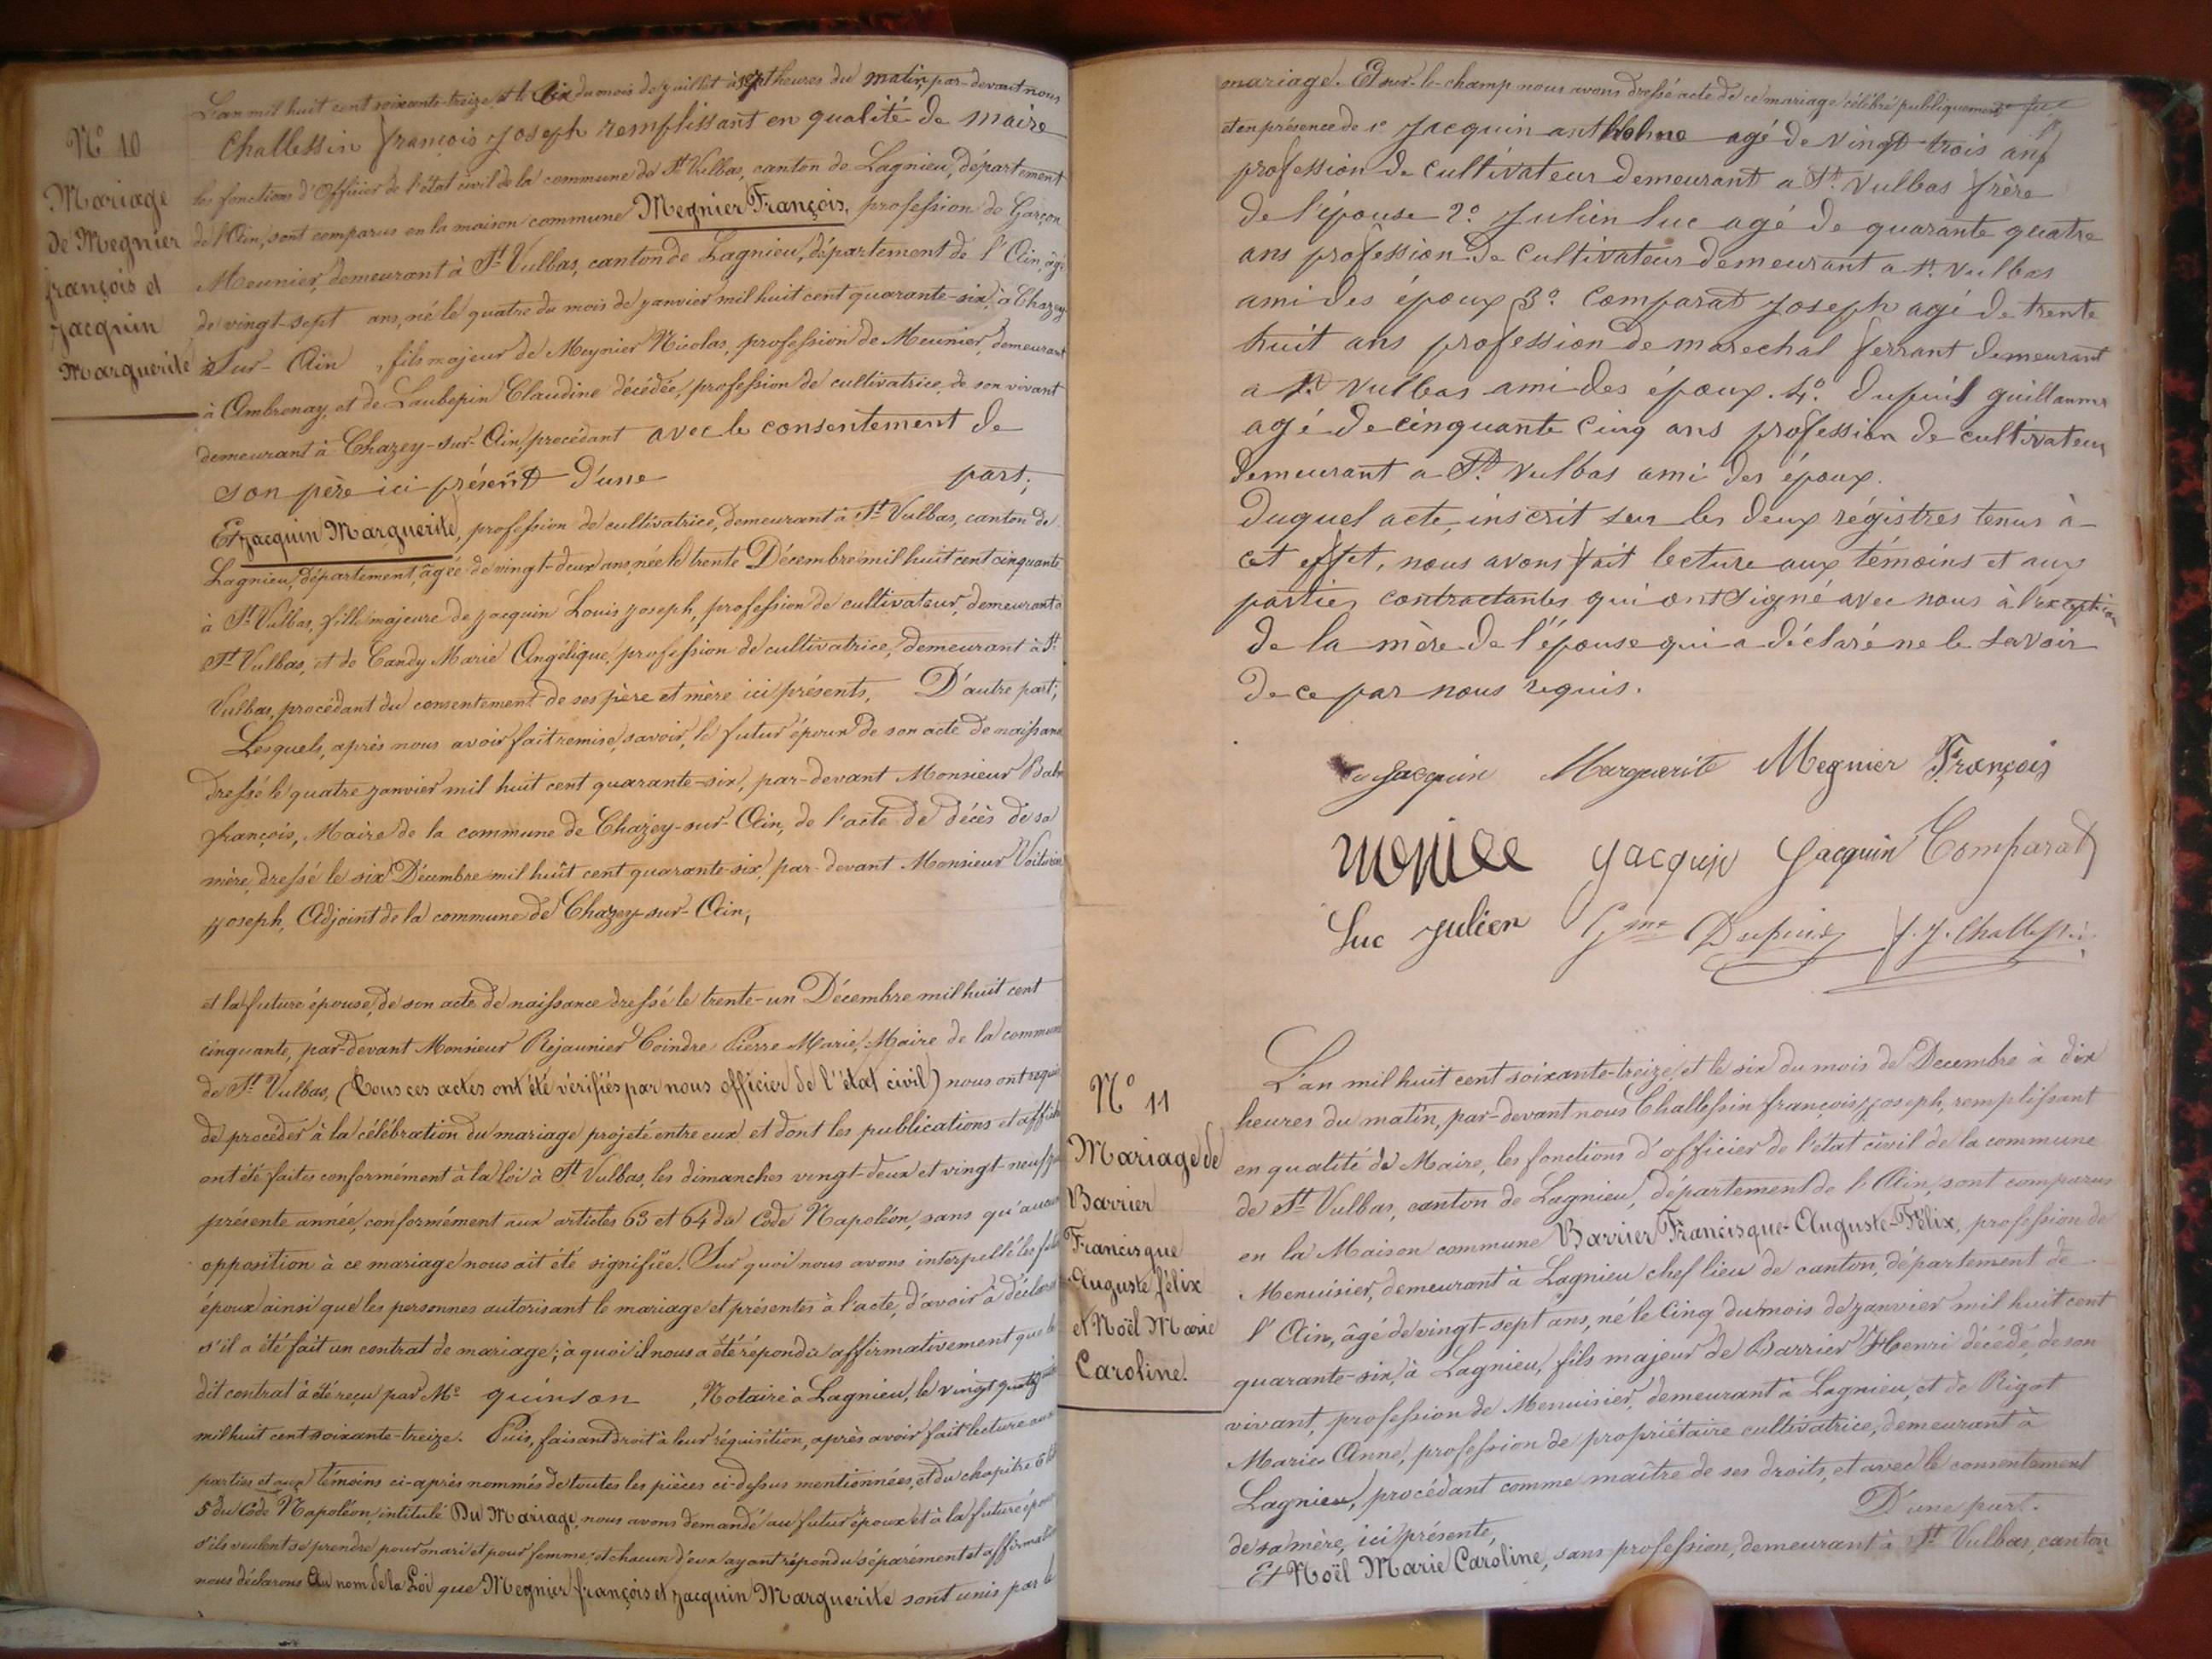 N° 10
Mariage
de Megnier
françois et
jacquin
Marguerite
L'an mil huit cent soixante-treize et le dix du mois de juillet à sept heures du matin, par-devant nous
Challessin françois Joseph remplissant en qualité de maire
les fonctions d'Officier de l'état civil de la commune de St Vulbas, canton de Lagnieu, département
de l'Ain, sont comparus en la maison commune Megnier François, profession de Garçon
Meunier, demeurant à St Vulbas, canton de Lagnieu, département de l'Ain, âgé
de vingt-sept ans, né le quatre du mois de janvier mil huit cent quarante-six, à Chazey-
Sur-Ain, fils majeur de Meynier Nicolas, profession de Meunier, demeurant
à Ambronay, et de Laubepin Claudine décédée, profession de cultivatrice, de son vivant
demeurant à Chazey-sur-Ain, procédant avec le consentement de
son père ici présent d'une part;
Et jacquin Marguerite, profession de cultivatrice, demeurant à St Vulbas, canton de
Lagnieu, département, âgée de vingt-deux ans, née le trente Décembre mil huit cent cinquante
à St Vulbas, fille majeure de jacquin Louis joseph, profession de cultivateur, demeurant à
St Vulbas, et de Candy Marie Angélique, profession de cultivatrice, demeurant à St
Vulbas, procédant du consentement de ses père et mère ici présents, D'autre part;
Lesquels, après nous avoir fait remise, savoir, le futur époux de son acte de naissance
dressé le quatre janvier mil huit cent quarante-six, par-devant Monsieur
françois, Maire de la commune de Chazey-sur-Ain, de l'acte de décès de sa
mère, dressé le six Décembre mil huit cent quarante-six, par-devant Monsieur
joseph, Adjoint de la commune de Chazey-sur-Ain,
et la future épouse, de son acte de naissance dressé le trente-un Décembre mil huit cent
cinquante, par-devant Monsieur Rejaunier Coindre Pierre Marie, Maire de la commune
de St Vulbas, (Tous ces actes ont été vérifiés par nous officier de l'état civil) nous ont requis
de procéder à la célébration du mariage projeté entre eux et dont les publications et affiches
ont été faites conformément à la loi à St Vulbas, les dimanches vingt-deux et vingt-neuf
présente année, conformément aux articles 63 et 64 du Code Napoléon, sans qu'aucune
opposition à ce mariage nous ait été signifiée. Sur quoi nous avons interpellé les futurs
époux ainsi que les personnes autorisant le mariage et présentes à l'acte, d'avoir à déclarer
s'il a été fait un contrat de mariage; à quoi il nous a été répondu affirmativement que le
dit contrat a été reçu par Me quinson, Notaire à Lagnieu, le vingt quatre
mil huit cent soixante-treize. Puis, faisant droit à leur réquisition, après avoir fait lecture aux
parties et aux témoins ci-après nommés de toutes les pièces ci-dessus mentionnées, et du chapitre 6 tit
5 du Code Napoléon, intitulé Du Mariage, nous avons demandé au futur époux et à la future épouse
s'ils veulent se prendre pour mari et pour femme; et chacun d'eux ayant répondu séparément et affirmativement
nous déclarons Au nom de la Loi que Megnier françois et jacquin Marguerite sont unis par le
mariage. Et sur-le-champ nous avons dressé acte de ce mariage célébré publiquement
et en présence de 1° Jacquin anthelme agé de vingt-trois ans
profession de cultivateur demeurant a St Vulbas frère
de l'épouse 2° Julien luc agé de quarante quatre
ans profession de cultivateur demeurant a St Vulbas
ami des époux 3° Comparat Joseph agé de trente
huit ans profession de marechal ferrant demeurant
a St Vulbas ami des époux. 4° dupuis guillaume
agé de cinquante cinq ans profession de cultivateur
demeurant a St Vulbas ami des époux.
Duquel acte, inscrit sur les deux régistres tenus à
cet effet, nous avons fait lecture aux témoins et aux
parties contractantes qui ont signé avec nous à l'exception
de la mère de l'épouse qui a déclaré ne le savoir
de ce par nous requis.
Jacquin Marguerite Megnier François
Jacquin Jacquin Comparat
Luc Julien Gme Dupuis f. J. Challessin
N° 11
Mariage de
Barrier
Francisque
Auguste félix
et Noël Marie
Caroline.
L'an mil huit cent soixante-treize, et le six du mois de Decembre à dix
heures du matin, par-devant nous Challessin françois joseph, remplissant
en qualité de Maire, les fonctions d'officier de l'état civil de la commune
de St Vulbas, canton de Lagnieu, département de l'Ain, sont comparus
en la Maison commune Barrier Francisque-Auguste-Félix, profession de
Menuisier, demeurant à Lagnieu chef lieu de canton, département de
l'Ain, âgé de vingt-sept ans, né le Cinq du mois de janvier mil huit cent
quarante-six, à Lagnieu, fils majeur de Barrier Henri décédé, de son
vivant, profession de Menuisier, demeurant à Lagnieu, et de Rigot
Marie Anne, profession de propriétaire cultivatrice, demeurant à
Lagnieu, procédant comme maître de ses droits, et avec le consentement
de sa mère, ici présente, D'une part.
Et Noël Marie Caroline, sans profession, demeurant à St Vulbas, canton